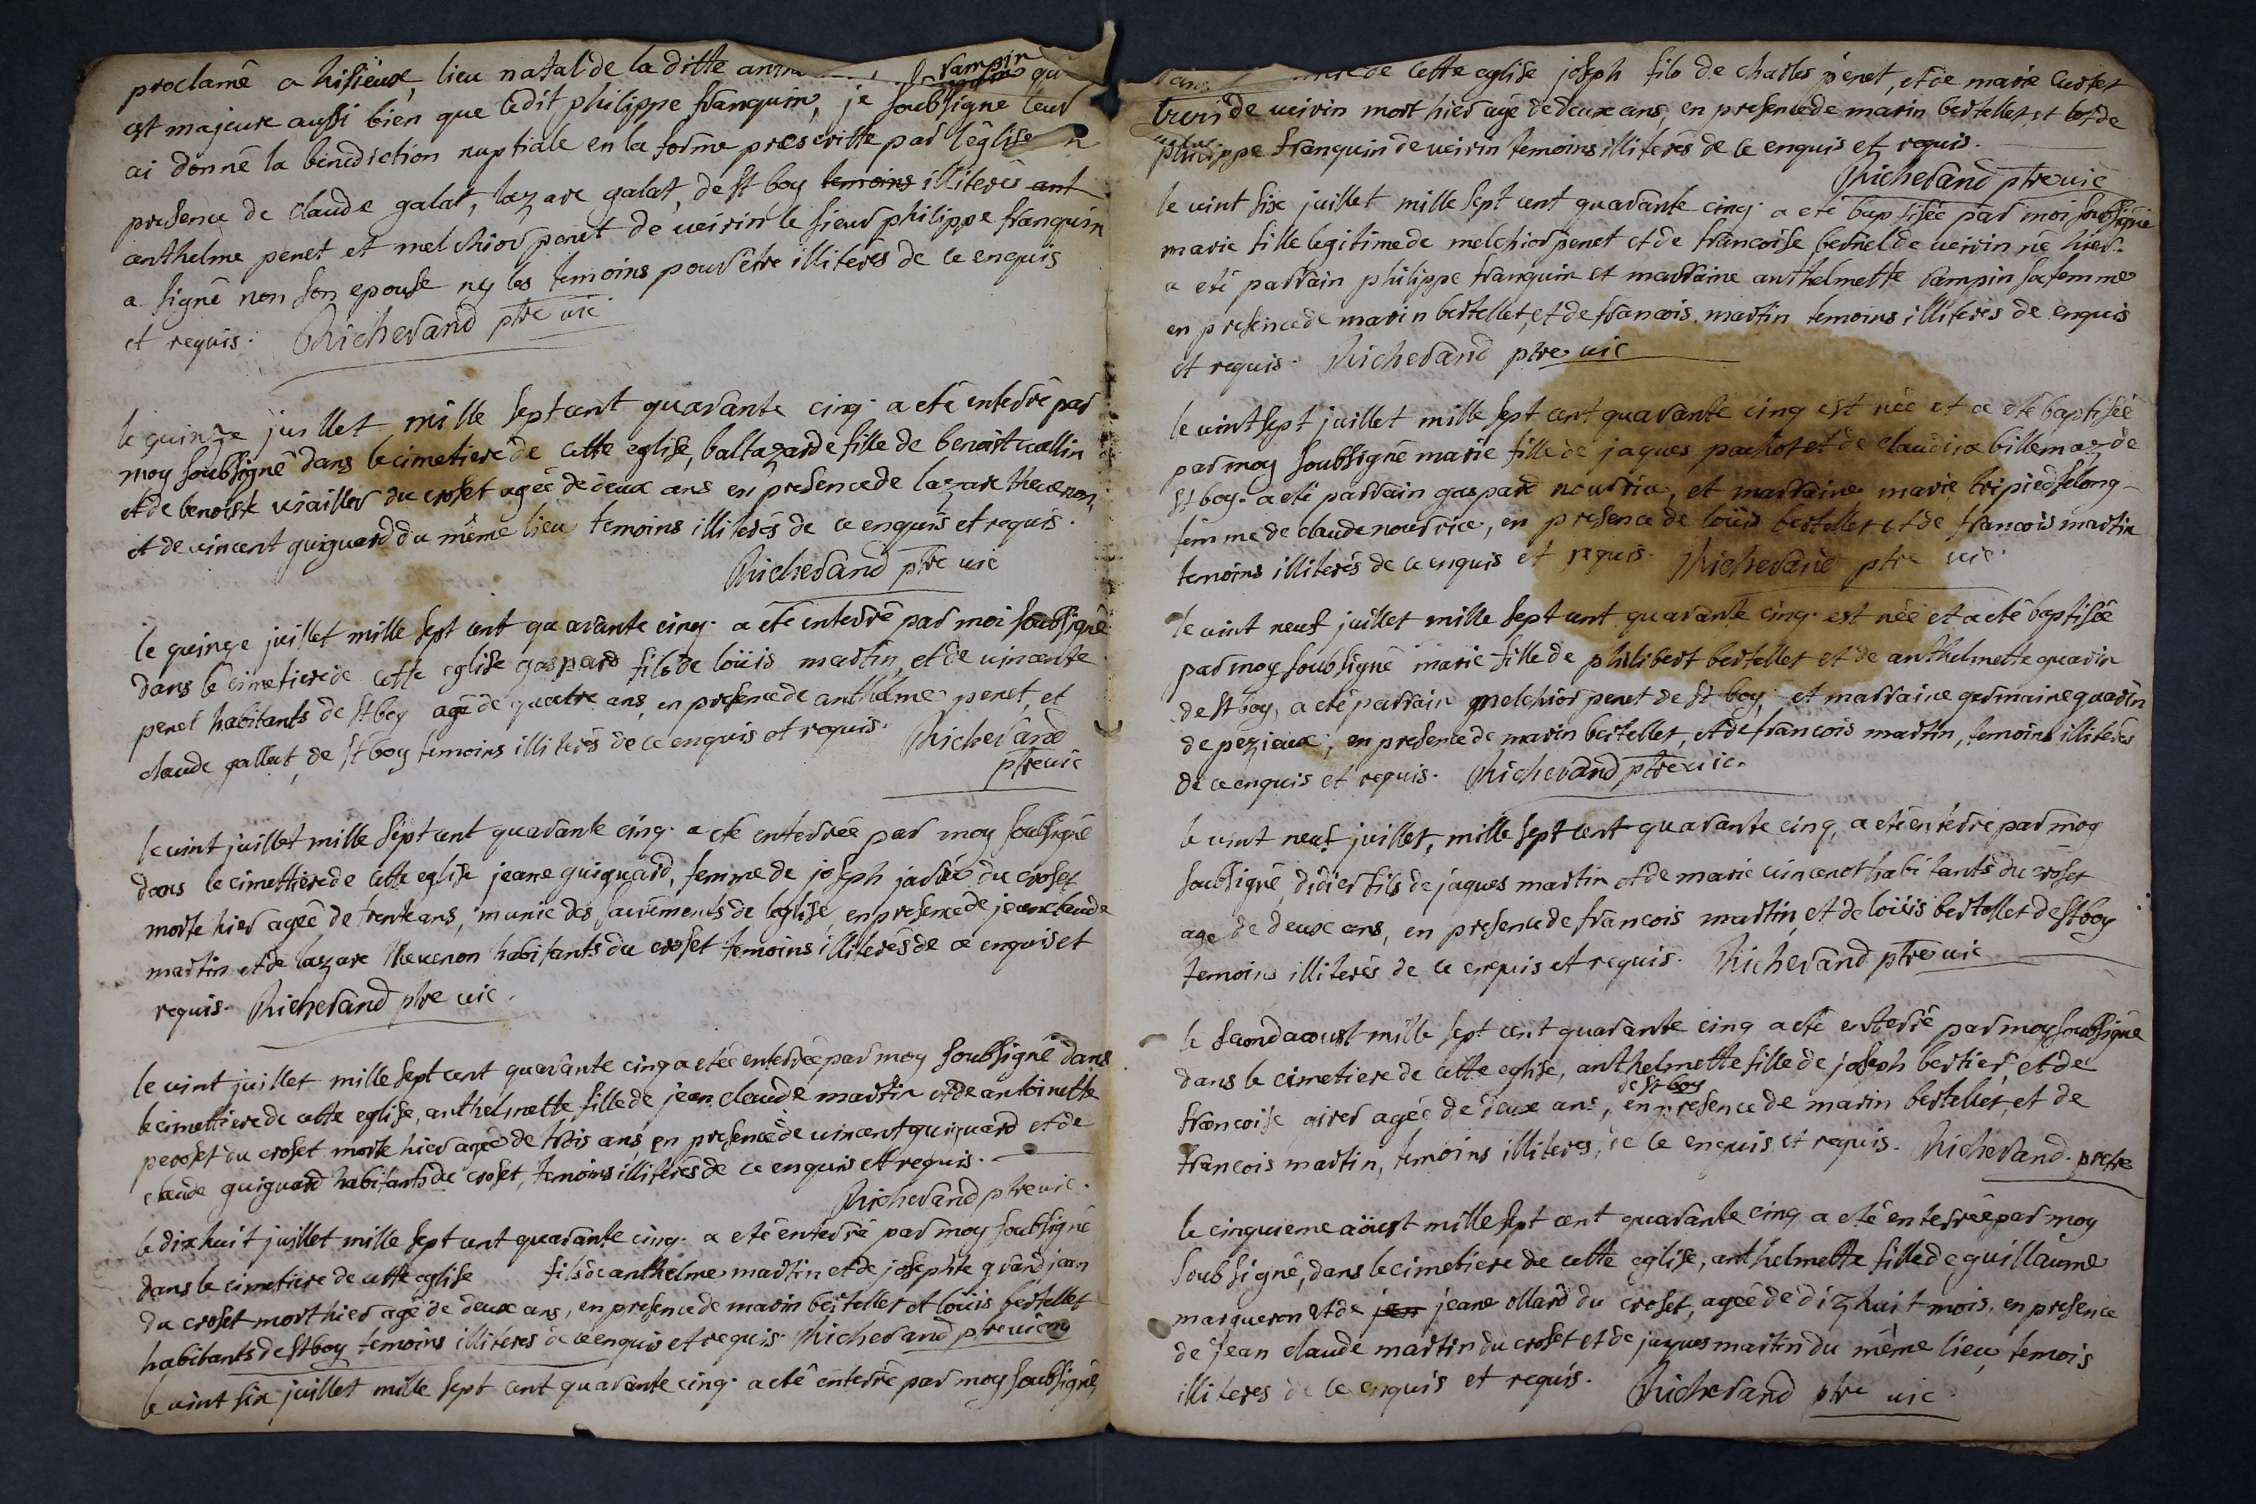 proclamé a hisieux, lieu natal de la ditte rampin qu
est majeure aussi bien que ledit philippe franquin, je soubsigne leur
ai donné la benediction nuptiale en la forme prescritte par l'église
presence de claude galat, lazare galat, de st boy temoins illiterés ant
anthelme penet et melchior penet de veirin le sieur philippe franquin
a signé non son epouse ny les temoins pour être illiteres de ce enquis
et requis. Richerand ptre vic
le quinze juillet mille sept cent quarante cinq. a eté enterré par
moy soubsigné dans le cimetiere de cette eglise, baltazarde fille de benoist vallin
et de benoiste viailler du croset agée de deux ans en presence de lazare thevenon,
et de vincent guiguard du même lieu temoins illiterés de ce enquis et requis.
Richerand ptre vic
le quinze juillet mille sept cent quarante cinq. a eté enterré par moi soubsigné
dans le cimetiere de cette eglise gaspard fils de loüis martin, et de vincente
penet habitants de st boy agé de quatre ans, en presence de anthelme penet, et
claude gallat, de st boy temoins illiterés de ce enquis et requis. Richerand
ptre vic
le vint juillet mille sept cent quarante cinq. a eté enterrée par moy soubsigné
dans le cimettiere de cette eglise jeane guiguard, femme de joseph jarrié du croset
morte hier agée de trente ans, munie des sacréments de l'eglise en presence de jean claude
martin et de lazare thevenon habitants du croset temoins illiterés de ce enquis et
requis. Richerand ptre vic.
le vint juillet mille sept cent quarante cinq a eteé enterrée par moy soubsigné dans
le cimettiere de cette eglise, anthelmette fille de jean claude martin et de antoinette
peroset du croset morte hier agée de trois ans en presence de vincent guiguard et de
claude guiguard habitants du croset, temoins illiterés de ce enquis et requis.
Richerand ptre vic.
le dixhuit juillet mille sept cent quarante cinq. a eté enterré par moy soubsigné
dans le cimetiere de cette eglise fils de anthelme martin et de josephte grandjean
du croset mort hier agé de deux ans, en presence de marin bertellet et loüis bertellet
habitants de st boy temoins illiteres de ce enquis et requis. Richerand ptre vic
le vint six juillet mille sept cent quarante cinq. a eté enterré par moy soubsigné,
de cette eglise joseph fils de charles penet, et de marie curtet
de veirin mort hier agé de deux ans, en presence de marin bertellet, et de
philippe franquin de veirin temoins illiterés de ce enquis et requis.
Richerand ptre vic
le vint six juillet mille sept cent quarante cinq. a eté baptisée par moi soubsigné
marie fille legitime de melchior penet et de francoise bernel de veirin né hier.
a eté parrain philippe franquin et marraine anthelmette rampin sa femme
en presence de marin bertellet, et de francois martin temoins illiterés de enquis
et requis. Richerand ptre vic
le vint sept juillet mille sept cent quarante cinq est née et a eté baptisée
par moy soubsigné marie fille de jaques pachot et de claudine billemaz de
st boy. a eté parrain gaspard nourrice, et marraine marie tripied selong
femme de claude nourrice, en presence de loüis bertellet et de francois martin
temoins illiterés de ce enquis et requis. Richerand ptre vic.
le vint neuf juillet mille sept cent quarante cinq. est née et a eté baptisée
par moy soubsigné marie fille de philibert bertellet et de anthelmette guarin
de st boy, a eté parrain melchior penet de st boy, et marraine germaine guarin
de pezieux, en presence de marin bertellet, et de francois martin, temoins illiterés
de ce enquis et requis. Richerand ptre vic.
le vint neuf juillet, mille sept cent quarante cinq, a eté enterré par moy
soubsigné, didier fils de jaques martin et de marie vincenot habitants du croset
agé de deux ans, en presence de francois martin, et de loüis bertollet de st boy
temoins illiterés de ce enquis et requis. Richerand ptre vic
le second aoust mille sept cent quarante cinq a eté enterré par moy soubsigné
dans le cimetiere de cette eglise, anthelmette fille de joseph bertier, et de
de st boy
francoise girer agée de deux ans, en presence de marin bertellet, et de
francois martin, temoins illiteres, de ce enquis et requis. Richerand. pretre
le cinquieme aöust mille sept cent quarante cinq a eté enterrée par moy
soubsigné, dans le cimetiere de cette eglise, anthelmette fille de guillaume
marqueron et de jean jeane ollard du croset, agée de dizhuit mois, en presence
de jean claude martin du croset et de jaques martin du même lieu, temois
illiteres de ce enquis et requis. Richerand ptre vic.